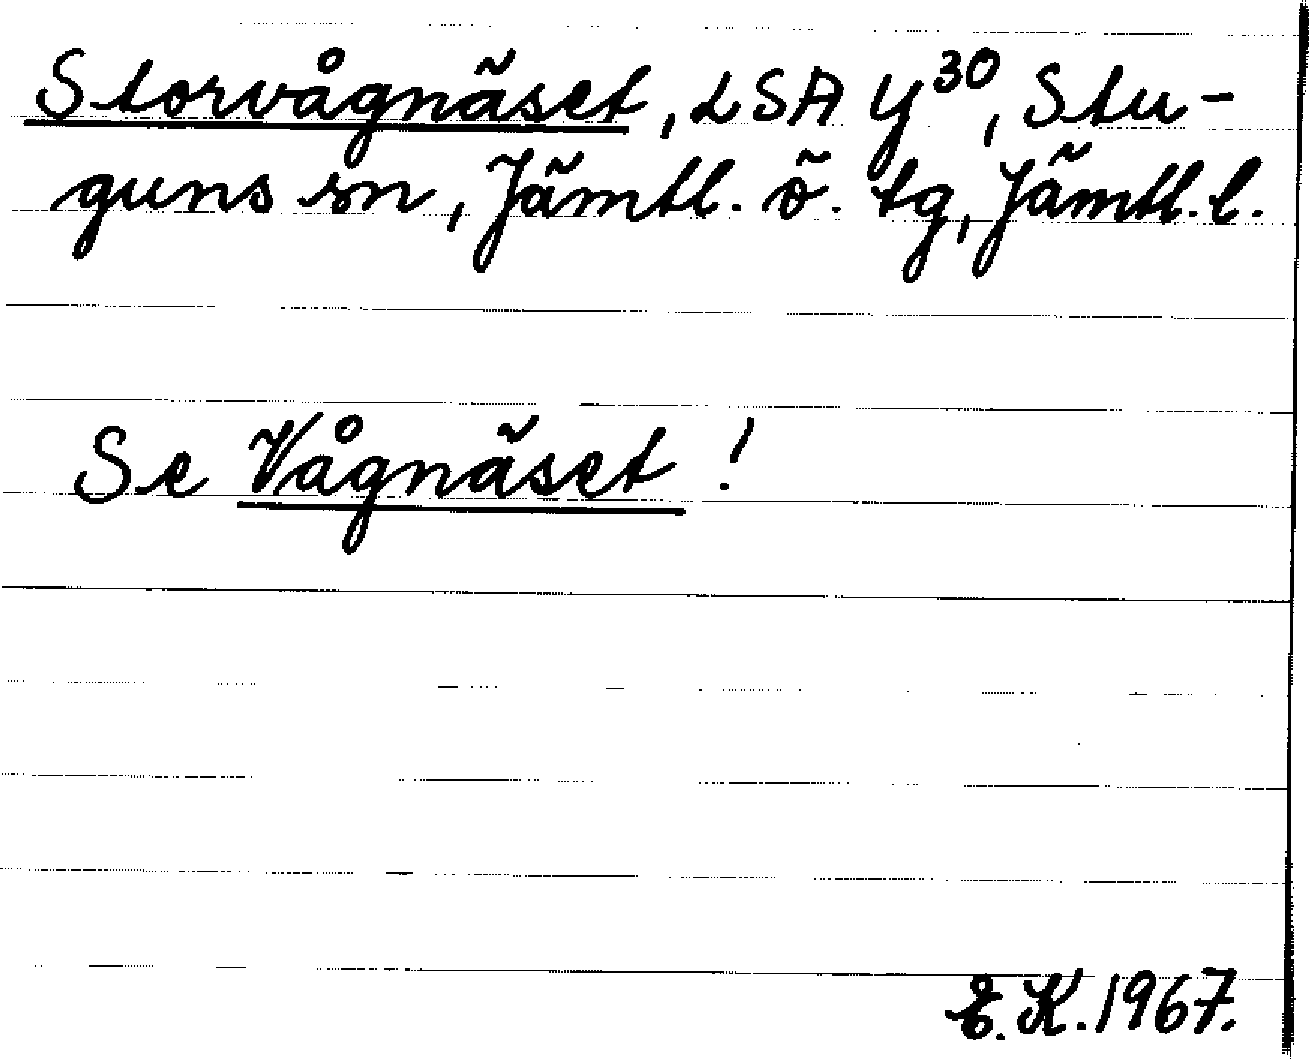 Storvågnäset, LSA Y30, Stu-
guns sn, Jämtl. ö. tg, Jämtl. l.
Se Vågnäset!
E.K. 1967.